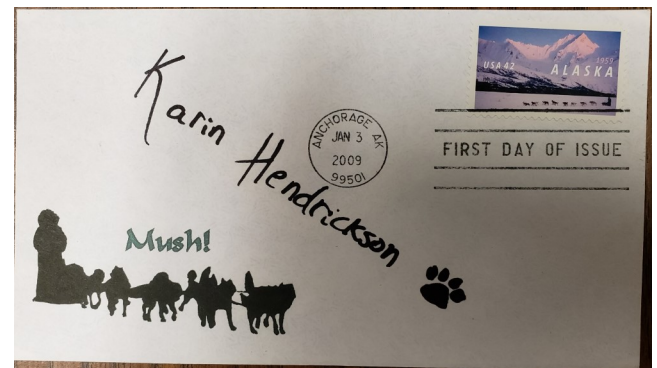 USA 42
1959
ALASKA
Karin
Hendrickson
ANCHORAGE AK
JAN 3
2009
99501
FIRST DAY OF ISSUE
Mush!